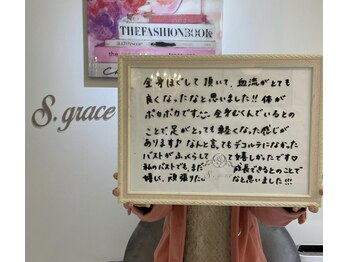 THEFASHIONBOOK
S. grace
全身ほぐして頂いて、血流がとても
良くなったなと思いました!!体が
ポカポカです 全身むくんでいるとの
ことで足がとっても軽くなった感じが
あります♪ なんと言ってもデコルテになかった
バストがふっくらして 嬉しかったです♡
私のバストでも、まだ 成長できるとのことで
嬉しい、頑張りたい なと思いました!!!